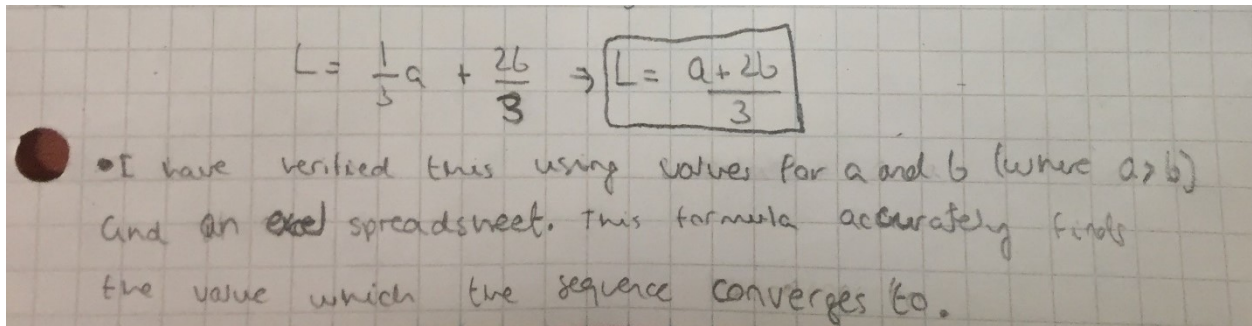 L = 1/3 a + 2b/3 ⇒ L = a + 2b/3
• I have verified this using values for a and b (where a > b)
and an excel spreadsheet. This formula accurately finds
the value which the sequence converges to.